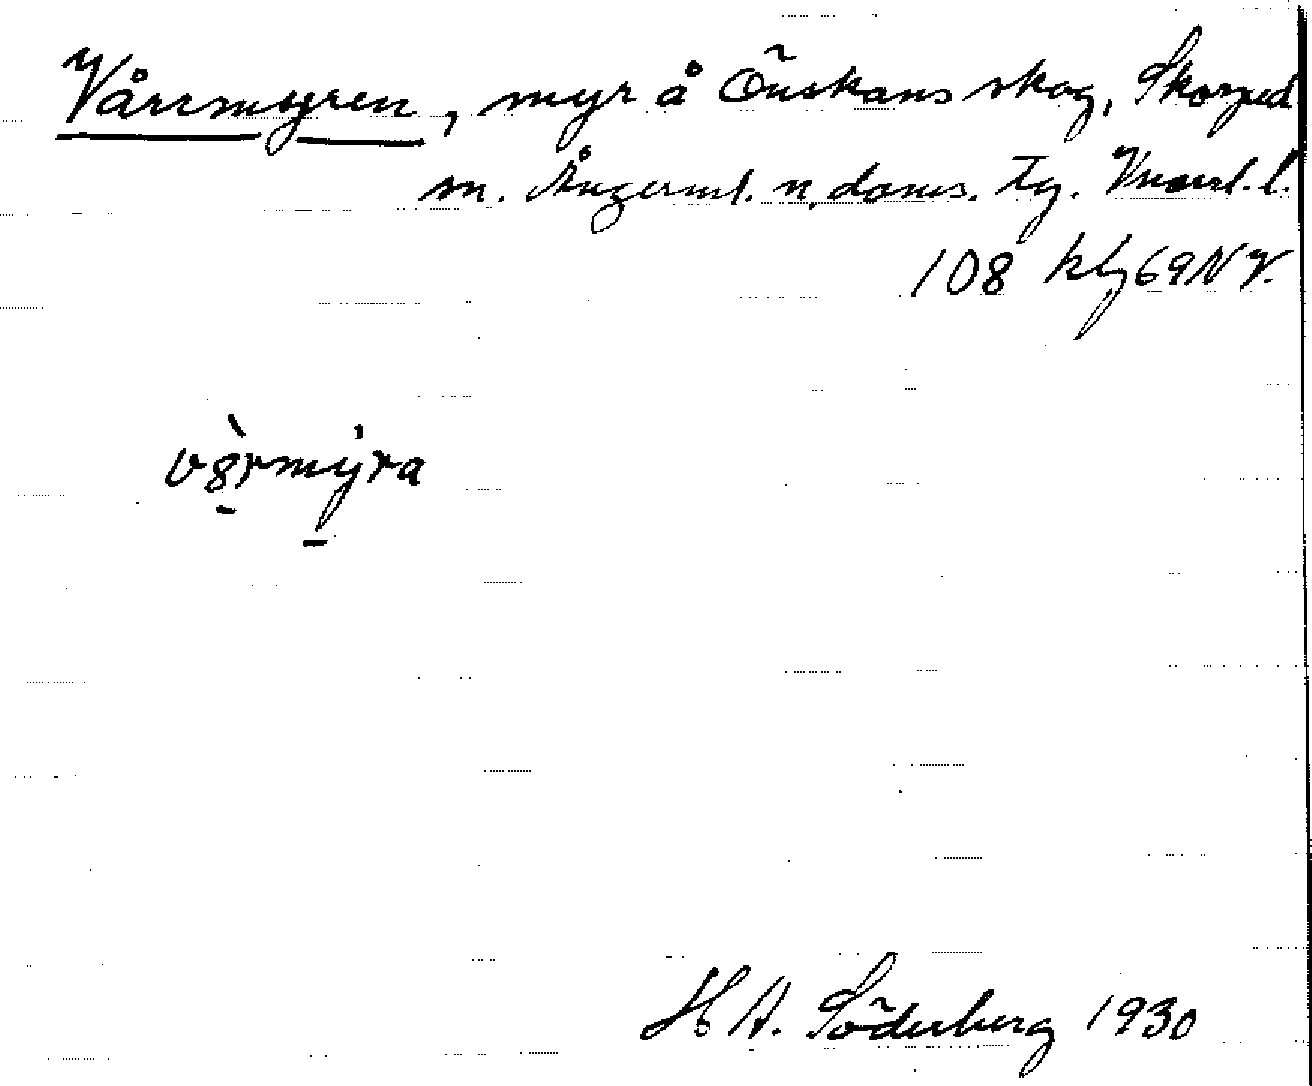 Vårrmyren, myr å Önskans skog, Skorped
sn. Ångerml. n. doms. Tg. Vnorrl. l.
108 kbl 69 NV.
vårmyra
H A. Söderberg 1930